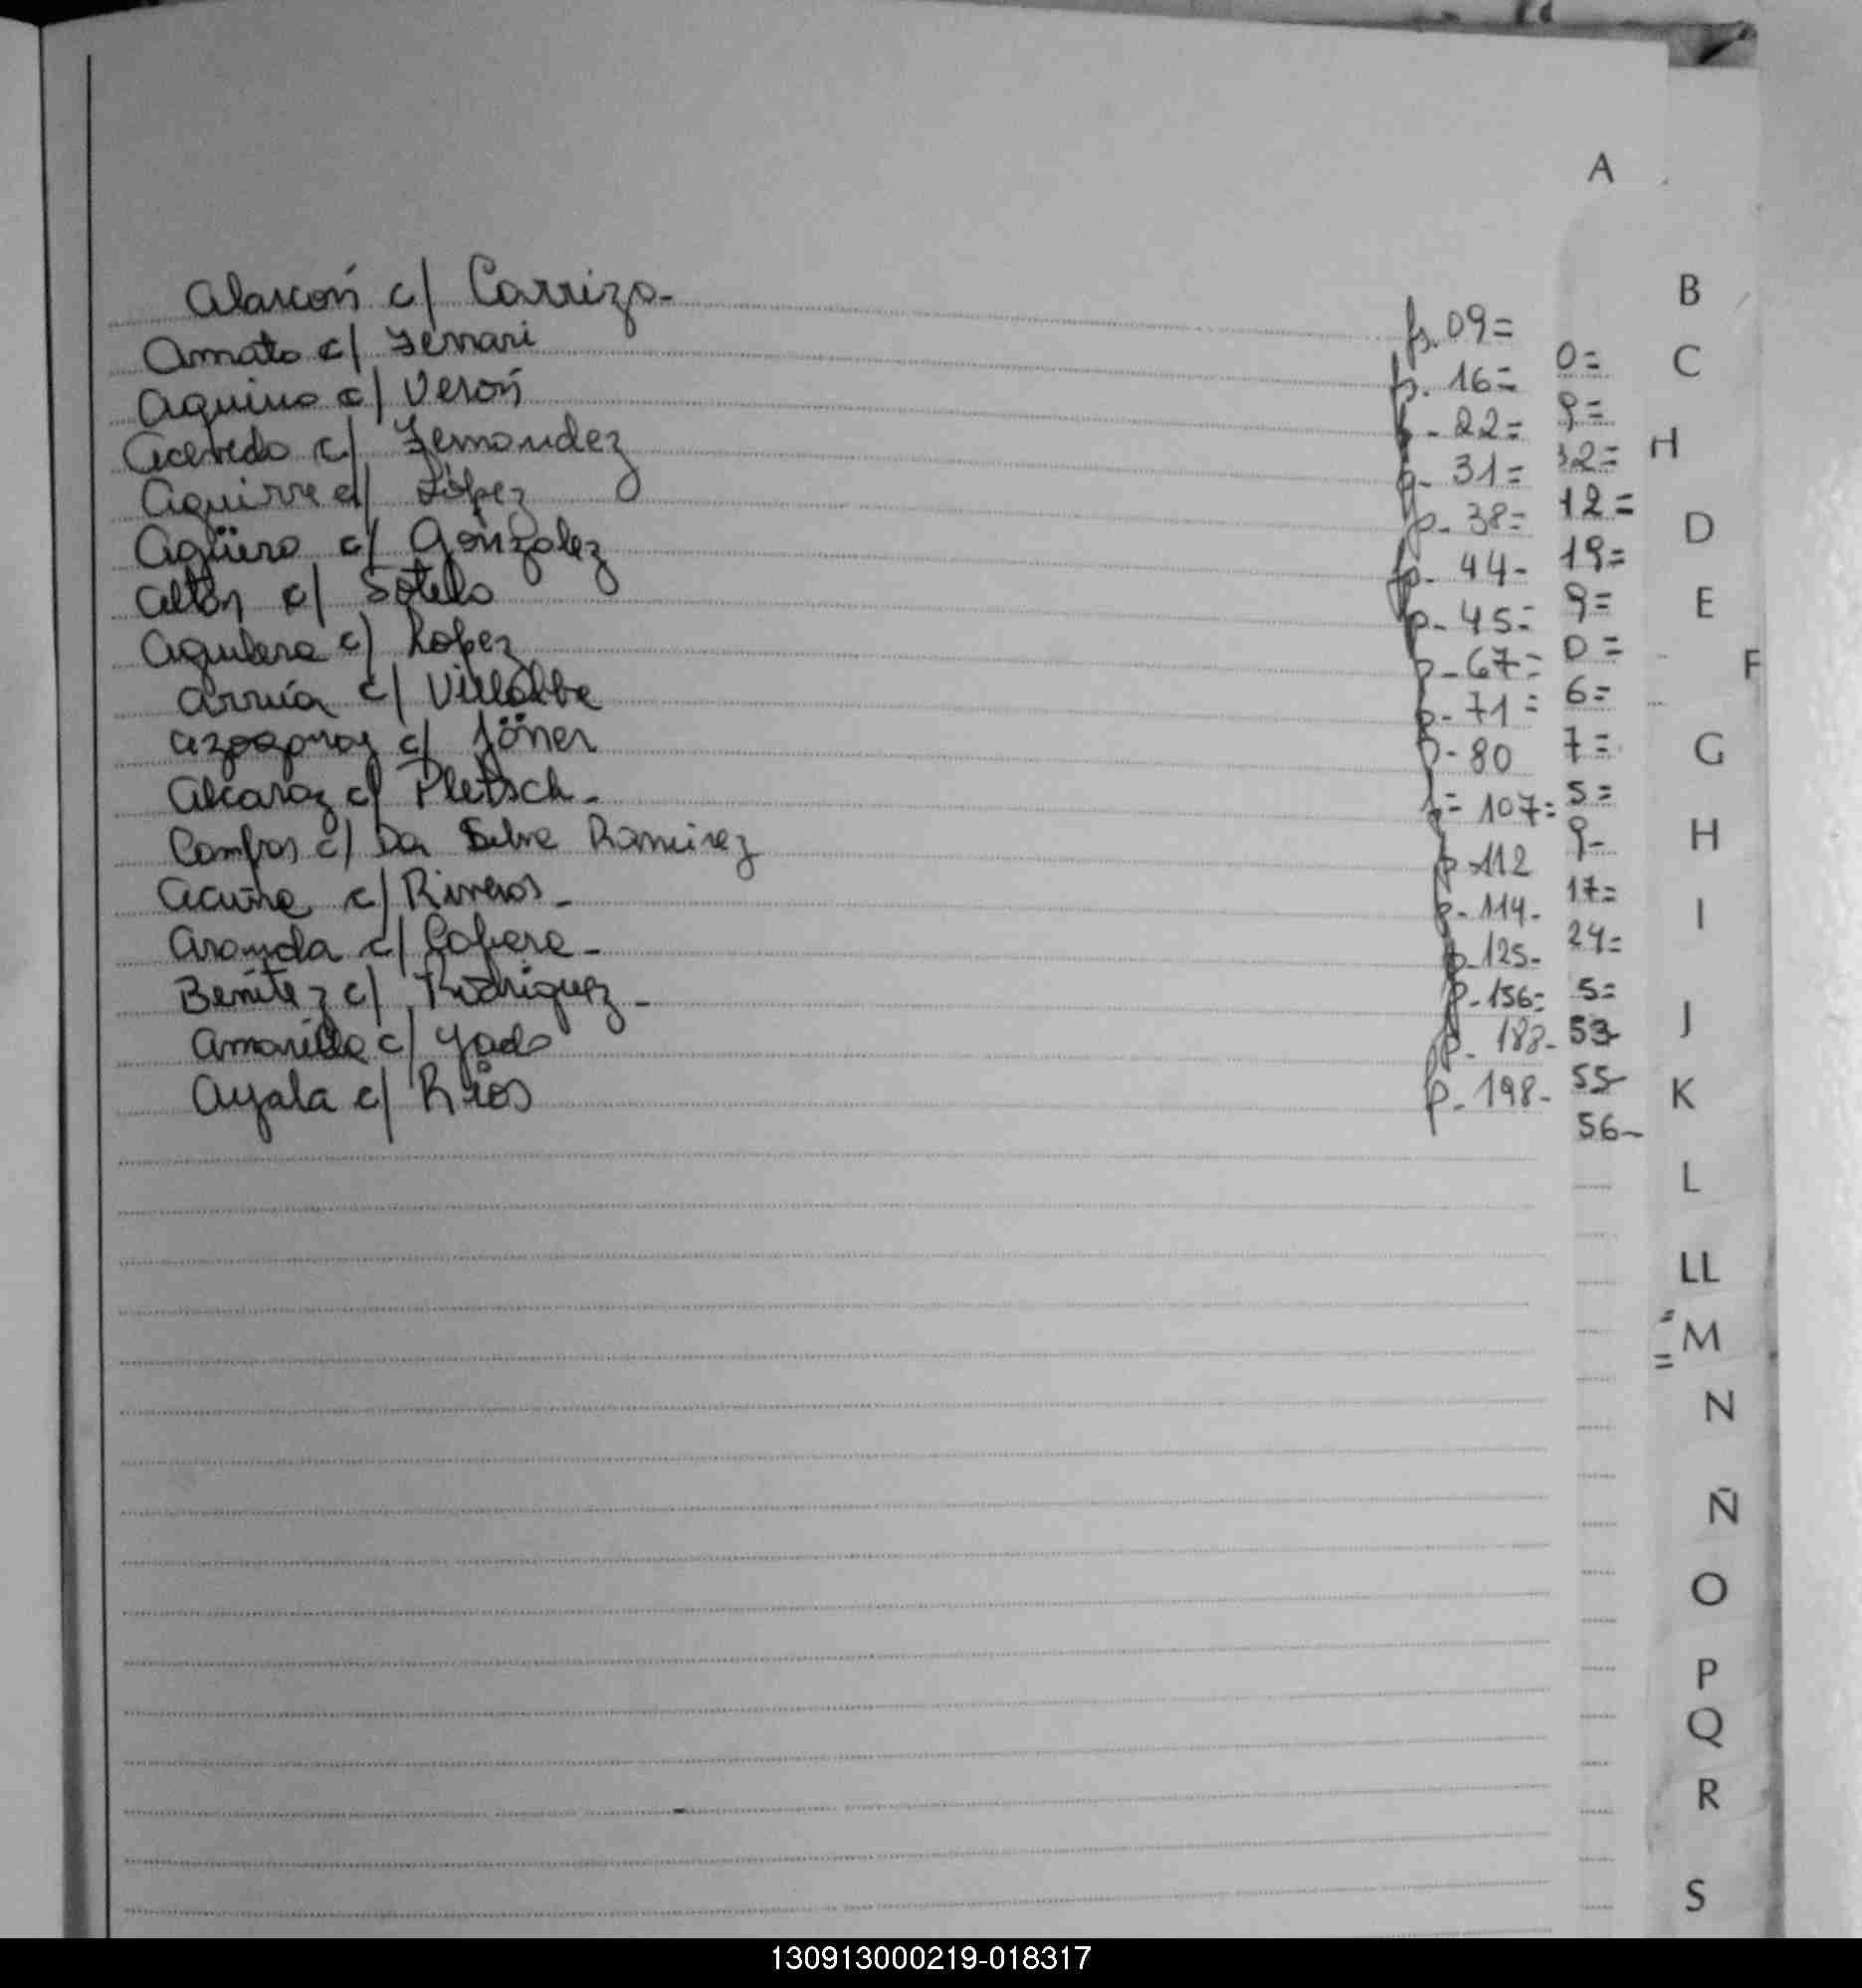 A
Alarcón c/ Carrizo- fs. 09=
Amato c/ Ferrari fs. 16=
Aquino c/ Verón f- 22=
Acevedo c/ Fernandez f- 31=
Aguirre c/ López fp- 38=
Agüero c/ Gónzalez fp- 44-
c/ Sotelo fp- 45=
Aguilera c/ Lopez p- 67=
Arrúa c/ Villalba p- 71=
c/ Jöner p- 80
Alcaraz c/ Pletsch- 107=
Campos c/ Da Silva Ramirez p- 112
Acuña c/ Riveros- p- 114-
Aranda c/ p- 125-
Benítez c/ Rodriguez- p- 156=
Amarilla c/ p- 188-
Ayala c/ Ríos p- 198-
0=
9=
32=
12=
19=
9=
0=
6=
7=
5=
9-
17=
24=
5=
53-
55-
56-
B
C
H
D
E
F
G
H
I
J
K
L
LL
M
N
Ñ
O
P
Q
R
S
130913000219-018317